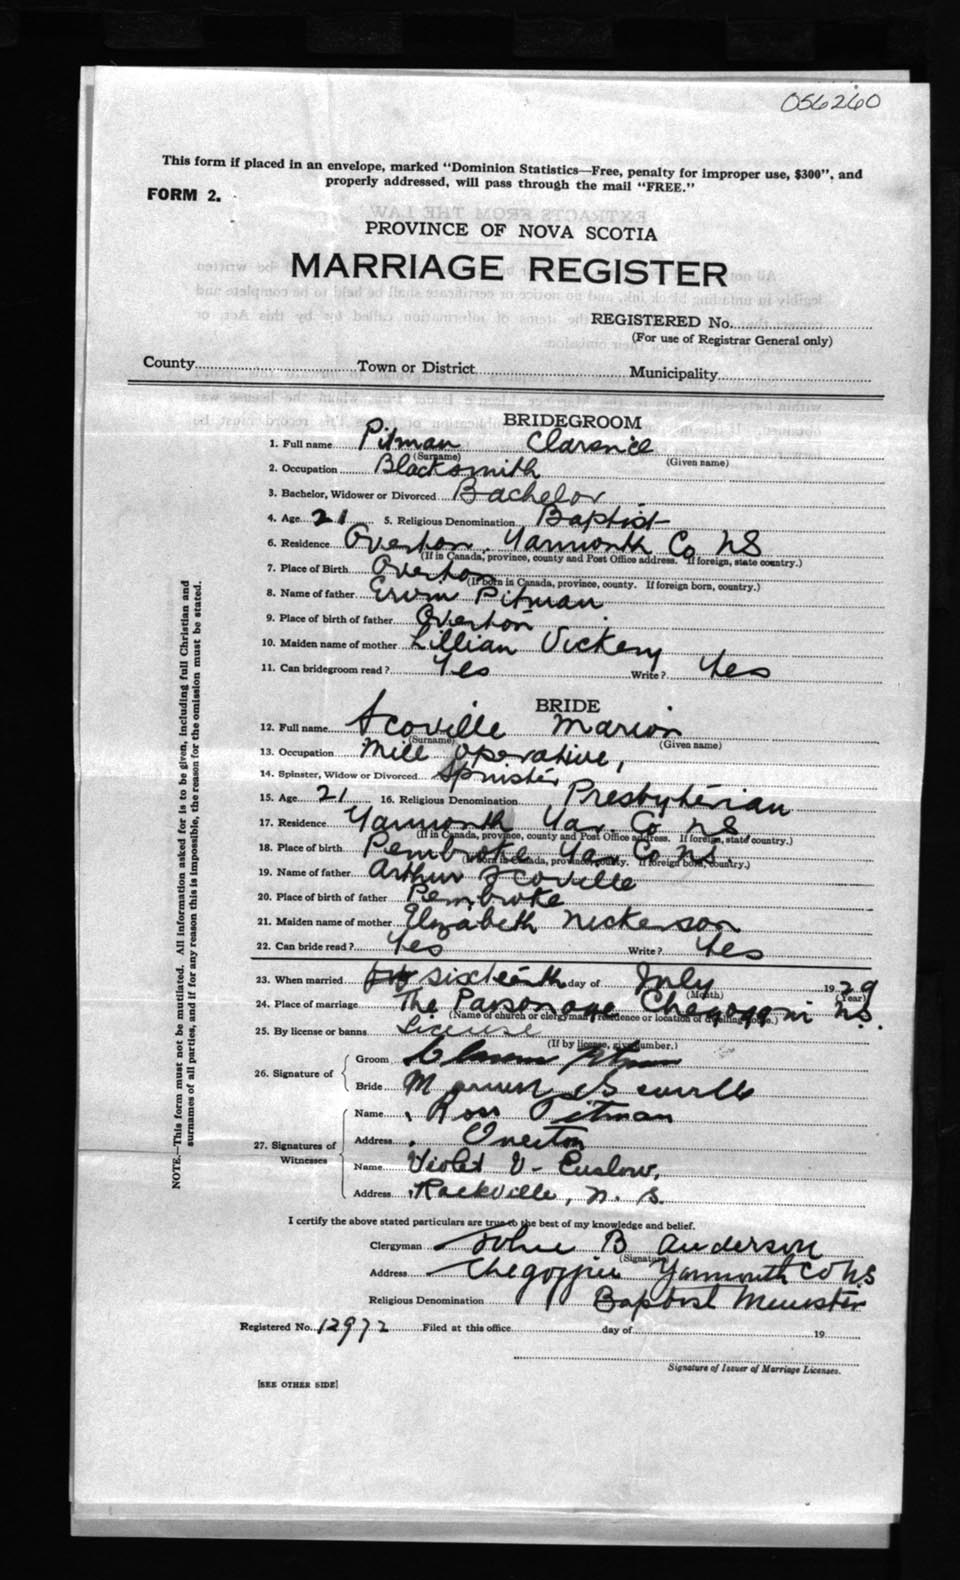 056260
This form if placed in an envelope, marked "Dominion Statistics—Free, penalty for improper use, $300", and
properly addressed, will pass through the mail "FREE."
FORM 2.
PROVINCE OF NOVA SCOTIA
MARRIAGE REGISTER
REGISTERED No.
(For use of Registrar General only)
County Town or District Municipality
BRIDEGROOM
1. Full name Pitman Clarence
(Surname) (Given name)
2. Occupation Blacksmith
3. Bachelor, Widower or Divorced Bachelor
4. Age 21 5. Religious Denomination Baptist
6. Residence Overton, Yarmouth Co NS
(If in Canada, province, county and Post Office address. If foreign, state country.)
7. Place of Birth Overton
(If born in Canada, province, county. If foreign born, country.)
8. Name of father Ervin Pitman
9. Place of birth of father Overton
10. Maiden name of mother Lillian Vickery
11. Can bridegroom read? Yes Write? Yes
BRIDE
12. Full name Scoville Marion
(Surname) (Given name)
13. Occupation Mill Operative,
14. Spinster, Widow or Divorced Spinster
15. Age 21 16. Religious Denomination Presbyterian
17. Residence Yarmouth Yar. Co NS
(If in Canada, province, county and Post Office address. If foreign, state country.)
18. Place of birth Pembroke Yar Co NS.
(If born in Canada, province, county. If foreign born, country.)
19. Name of father Arthur Scoville
20. Place of birth of father Pembroke
21. Maiden name of mother Elizabeth Nickerson
22. Can bride read? Yes Write? Yes
23. When married sixteenth day of July 1929
(Month) (Year)
24. Place of marriage The Parsonage Chegoggin N.S.
(Name of church or clergyman's residence or location of dwelling house.)
25. By license or banns License
(If by license, give number.)
26. Signature of Groom Clarence Pitman
Bride Marion Scoville
27. Signatures of Witnesses Name Ross Pitman
Address Overton
Name Violet V. Enslow,
Address Rockville, N. S.
I certify the above stated particulars are true to the best of my knowledge and belief.
Clergyman John B Anderson
(Signature)
Address Chegoggin Yarmouth Co NS
Religious Denomination Baptist Minister
Registered No. 12972 Filed at this office day of 19
Signature of Issuer of Marriage Licenses.
[SEE OTHER SIDE]
NOTE.—This form must not be mutilated. All information asked for is to be given, including full Christian and
surnames of all parties, and if for any reason this is impossible, the reason for the omission must be stated.